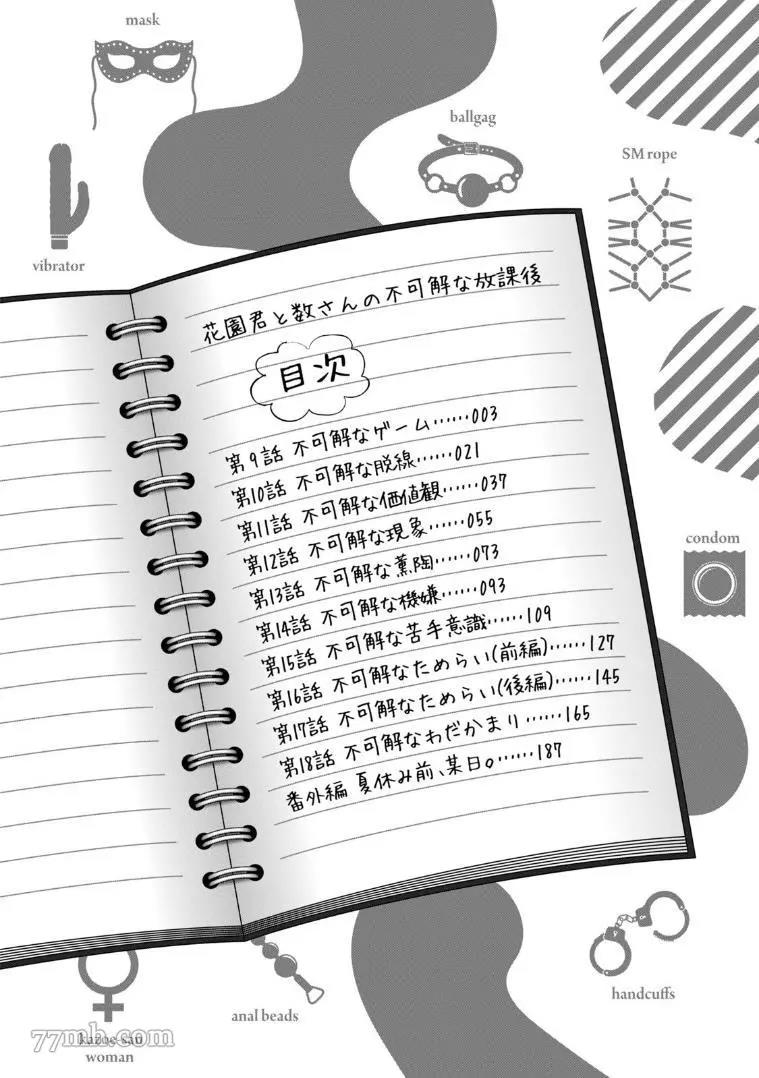 mask
ballgag
SM rope
vibrator
花園君と数さんの不可解な放課後
目次
第9話 不可解なゲーム……003
第10話 不可解な脱線……021
第11話 不可解な価値観……037
第12話 不可解な現象……055
第13話 不可解な薫陶……073
第14話 不可解な機嫌……093
第15話 不可解な苦手意識……109
第16話 不可解なためらい(前編)……127
第17話 不可解なためらい(後編)……145
第18話 不可解なわだかまり……165
番外編 夏休み前、某日。……187
condom
handcuffs
anal beads
kazoe-san
woman
77mb.com